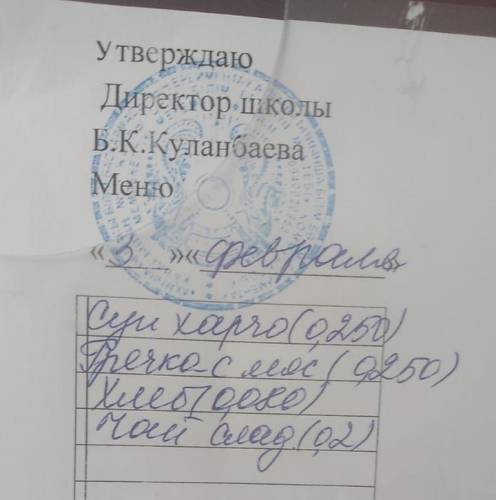 Утверждаю
Директор школы
Б.К.Куланбаева
Меню
« 3 »« февраля
Суп харчо (0,250)
Гречка с мяс (0,250)
Хлеб (0,080)
Чай слад (0,2)